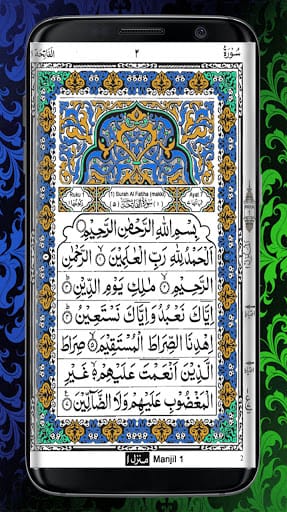 سُوْرَةُ ٢ اَلْفَاتِحَة ١
(1) Surah Al Fatiha (makki)
Ruku Ayat
بِسْمِ اللّٰهِ الرَّحْمٰنِ الرَّحِيْمِ
اَلْحَمْدُ لِلّٰهِ رَبِّ الْعٰلَمِيْنَ ۙ الرَّحْمٰنِ
الرَّحِيْمِ ۙ مٰلِكِ يَوْمِ الدِّيْنِ ۗ
اِيَّاكَ نَعْبُدُ وَاِيَّاكَ نَسْتَعِيْنُ ۗ
اِهْدِنَا الصِّرَاطَ الْمُسْتَقِيْمَ ۙ صِرَاطَ
الَّذِيْنَ اَنْعَمْتَ عَلَيْهِمْ ۙ غَيْرِ
الْمَغْضُوْبِ عَلَيْهِمْ وَلَا الضَّآلِّيْنَ
منزل ١ Manjil 1
2